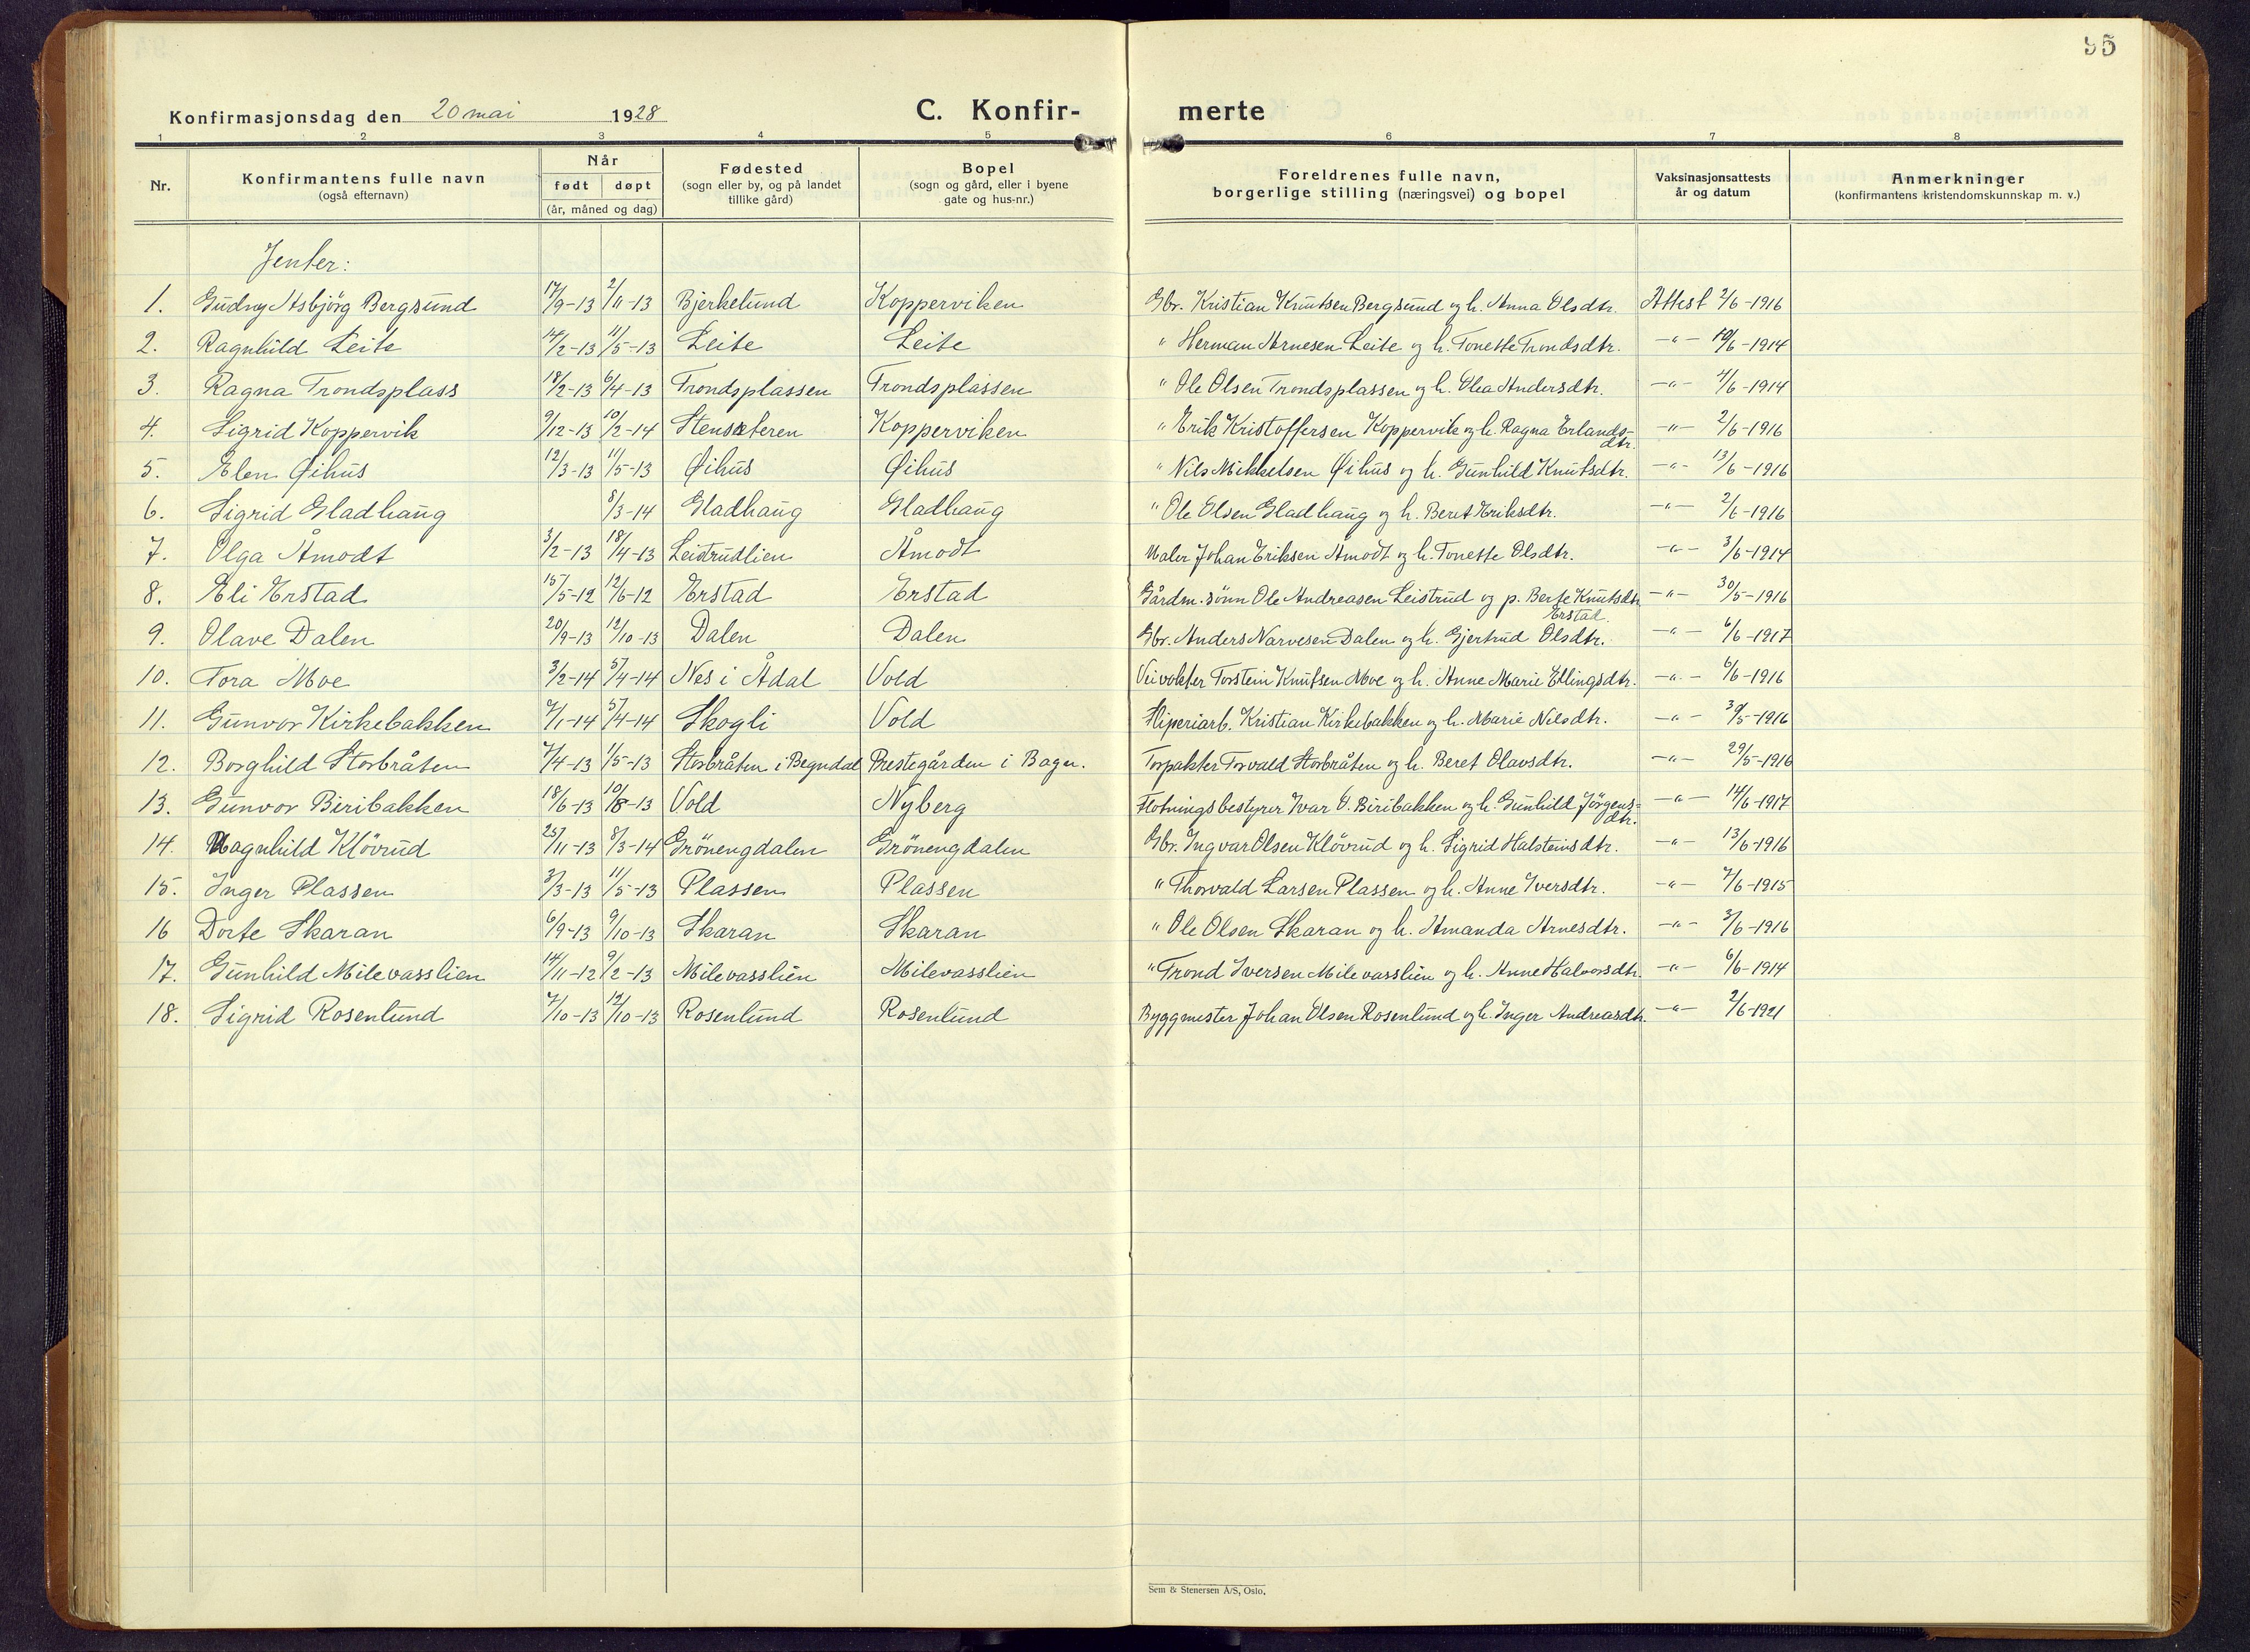 95
Konfirmasjonsdag den 20 mai 1928 C. Konfir- merte
1 2 3 4 5 6 7 8
Nr. Konfirmantens fulle navn (også efternavn) Når født døpt (år, måned og dag) Fødested (sogn eller by, og på landet tillike gård) Bopel (sogn og gård, eller i byene gate og hus-nr.) Foreldrenes fulle navn, borgerlige stilling (næringsvei) og bopel Vaksinasjonsattests år og datum Anmerkninger (konfirmantens kristendomskunnskap m. v.)
Jenter:
1. Gudny Asbjörg Bergsund 17/9-13 2/11-13 Bjerkelund Kopperviken Gbr. Kristian Knutsen Bergsund og h. Anna Olsdtr. Attest 2/6-1916
2. Ragnhild Leite 14/2-13 11/5-13 Leite Leite " Herman Arnesen Leite og h. Tonette Trondsdtr. -"- 10/6-1914
3. Ragna Trondsplass 18/2-13 6/4-13 Trondsplassen Trondsplassen " Ole Olsen Trondsplassen og h. Olea Andersdtr. -"- 4/6-1914
4. Sigrid Koppervik 9/12-13 10/2-14 Stensæteren Kopperviken " Erik Kristoffersen Koppervik og h. Ragna Erlands-dtr. -"- 2/6-1916
5. Elen Øihus 12/3-13 11/5-13 Øihus Øihus " Nils Mikkelsen Øihus og h. Gunhild Knutsdtr. -"- 13/6-1916
6. Sigrid Gladhaug 8/3-14 Gladhaug Gladhaug " Ole Olsen Gladhaug og h. Beret Eriksdtr. -"- 2/6-1916
7. Olga Åmodt 3/2-13 18/4-13 Leistrudlien Åmodt Maler Johan Eriksen Åmodt og h. Tonette Olsdtr. -"- 3/6-1914
8. Eli Erstad 15/5-12 12/6-12 Erstad Erstad Gårdm. sönn Ole Andreasen Leistrud og p. Berte Knutsdtr Erstad. -"- 30/5-1916
9. Olave Dalen 20/9-13 12/10-13 Dalen Dalen Gbr. Anders Narvesen Dalen og h. Gjertrud Olsdtr. -"- 6/6-1917
10. Tora Moe 3/2-14 5/4-14 Nes i Ådal Vold Veivokter Torstein Knutsen Moe og h. Anne Marie Ellingsdtr. -"- 6/6-1916
11. Gunvor Kirkebakken 7/1-14 5/4-14 Skogli Vold Sliperiarb. Kristian Kirkebakken og h. Marie Nilsdtr. -"- 30/5-1916
12. Borghild Storbråten 7/4-13 11/5-13 Storbråten i Begndal Prestegården i Bagn. Torpakter Torvald Storbråten og h. Beret Olavsdtr. -"- 29/5-1916
13. Gunvor Biribakken 18/6-13 10/8-13 Vold Nyberg Flötningsbestyrer Ivar O. Biribakken og h. Gunhild Jörgens-dtr. -"- 14/6-1917
14. Magnhild Klövrud 25/11-13 8/3-14 Grönengdalen Grönengdalen Gbr. Ingvar Olsen Klövrud og h. Sigrid Halsteinsdtr. -"- 13/6-1916
15. Inger Plassen 3/3-13 11/5-13 Plassen Plassen " Thorvald Larsen Plassen og h. Anne Iversdtr. -"- 7/6-1915
16 Dorte Skaran 6/9-13 9/10-13 Skaran Skaran " Ole Olsen Skaran og h. Amanda Arnesdtr. -"- 3/6-1916
17. Gunhild Milevasslien 14/11-12 9/2-13 Milevasslien Milevasslien " Trond Iversen Milevasslien og h. Anne Halvorsdtr. -"- 6/6-1914
18. Sigrid Rosenlund 7/10-13 12/10-13 Rosenlund Rosenlund Byggmester Johan Olsen Rosenlund og h. Inger Andreasdtr. -"- 2/6-1921
Sem & Stenersen A/S, Oslo.